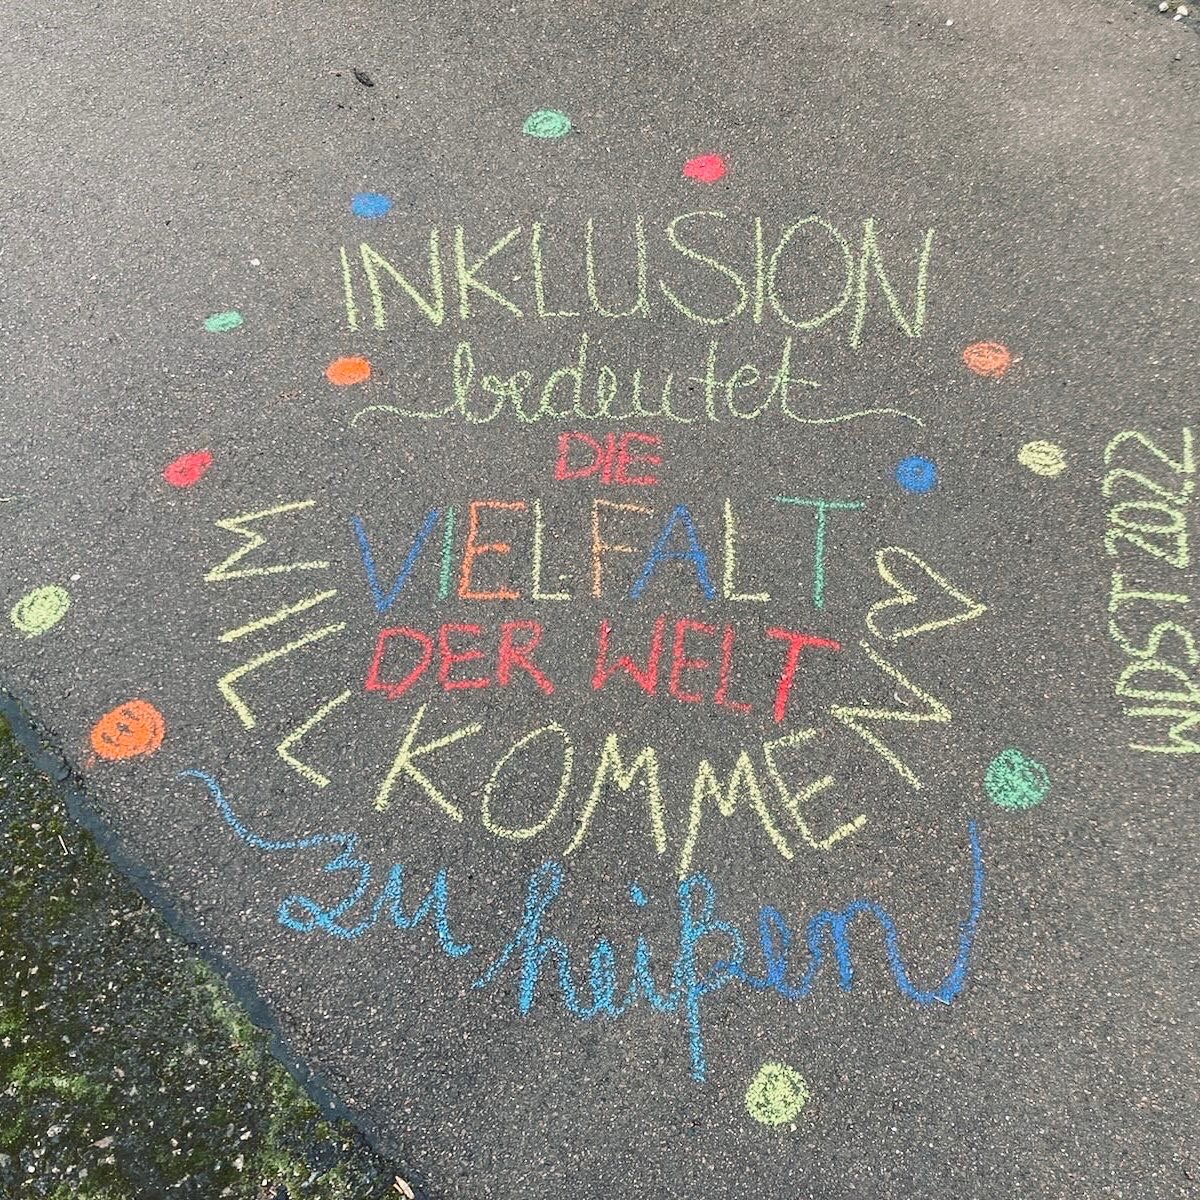 INKLUSION
bedeutet
DIE
VIELFALT
DER WELT
WILLKOMMEN
zu heißen
WDST 2022